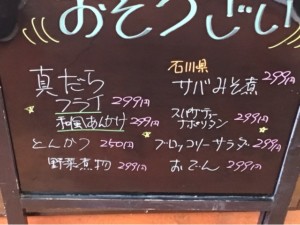 おそうざい
真だら
フライ 299円
和風あんかけ 299円
とんかつ 250円
野菜煮物 299円
石川県
サバみそ煮 299円
スパゲティー
ナポリタン 299円
ブロッコリーサラダ 299円
おでん 299円